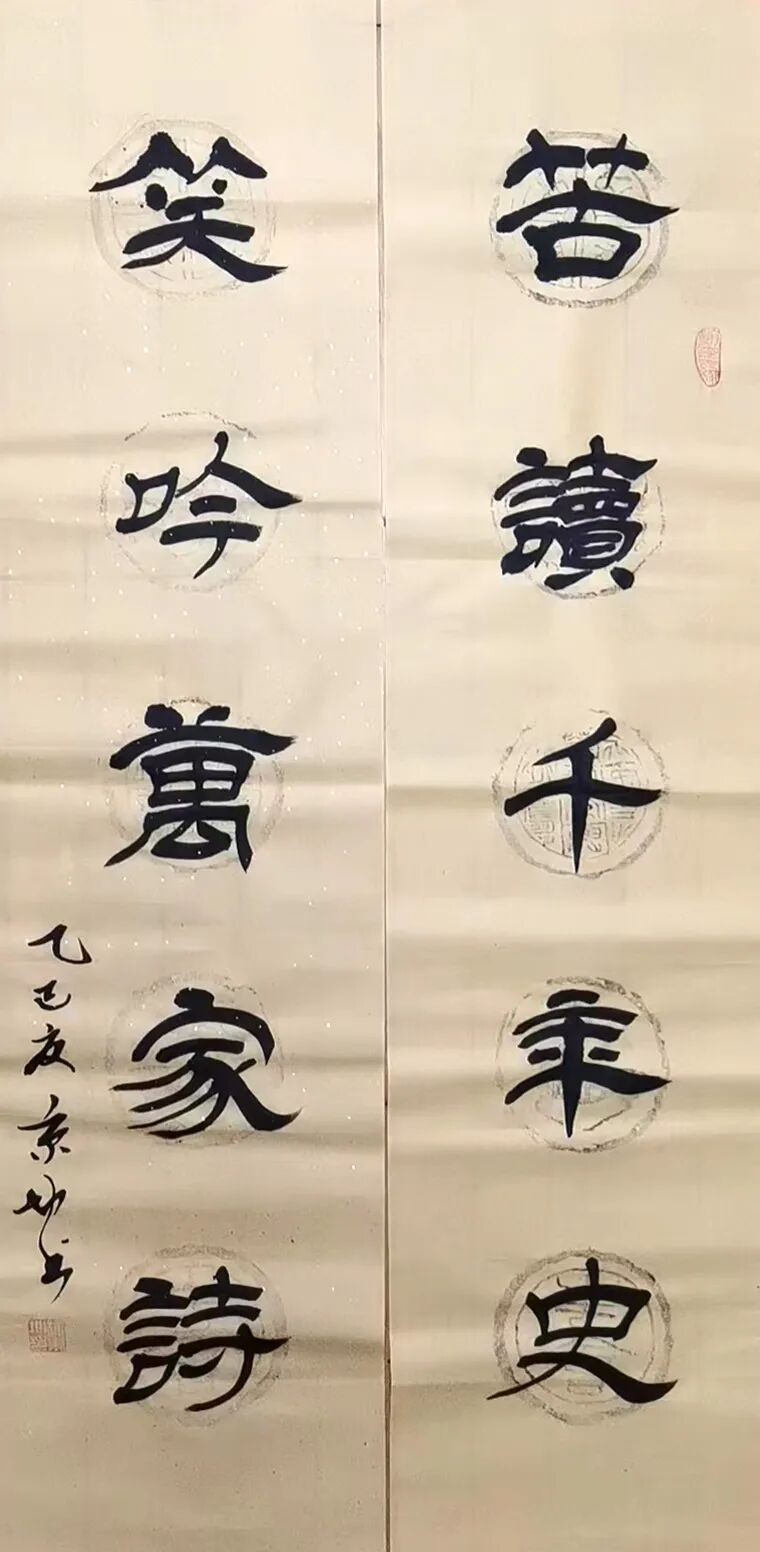 苦讀千年史
笑吟萬家詩
乙巳夏京妙书